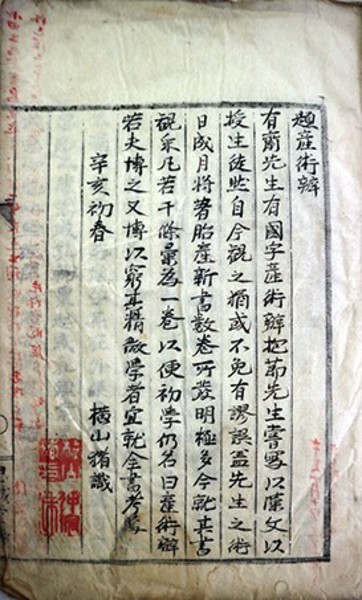 題産術辨
有齋先生有國字産術辨抱節先生嘗冩以漢文以
授生徒然自今觀之猶或不免有謬誤蓋先生之術
日成月將著胎産新書数卷所發明極多今就其書
觀采凡若干條彙為一卷以便初學仍名曰産術辨
若夫博之又博以窮其精微學者宜就全書考焉
辛亥初春 橫山猪識